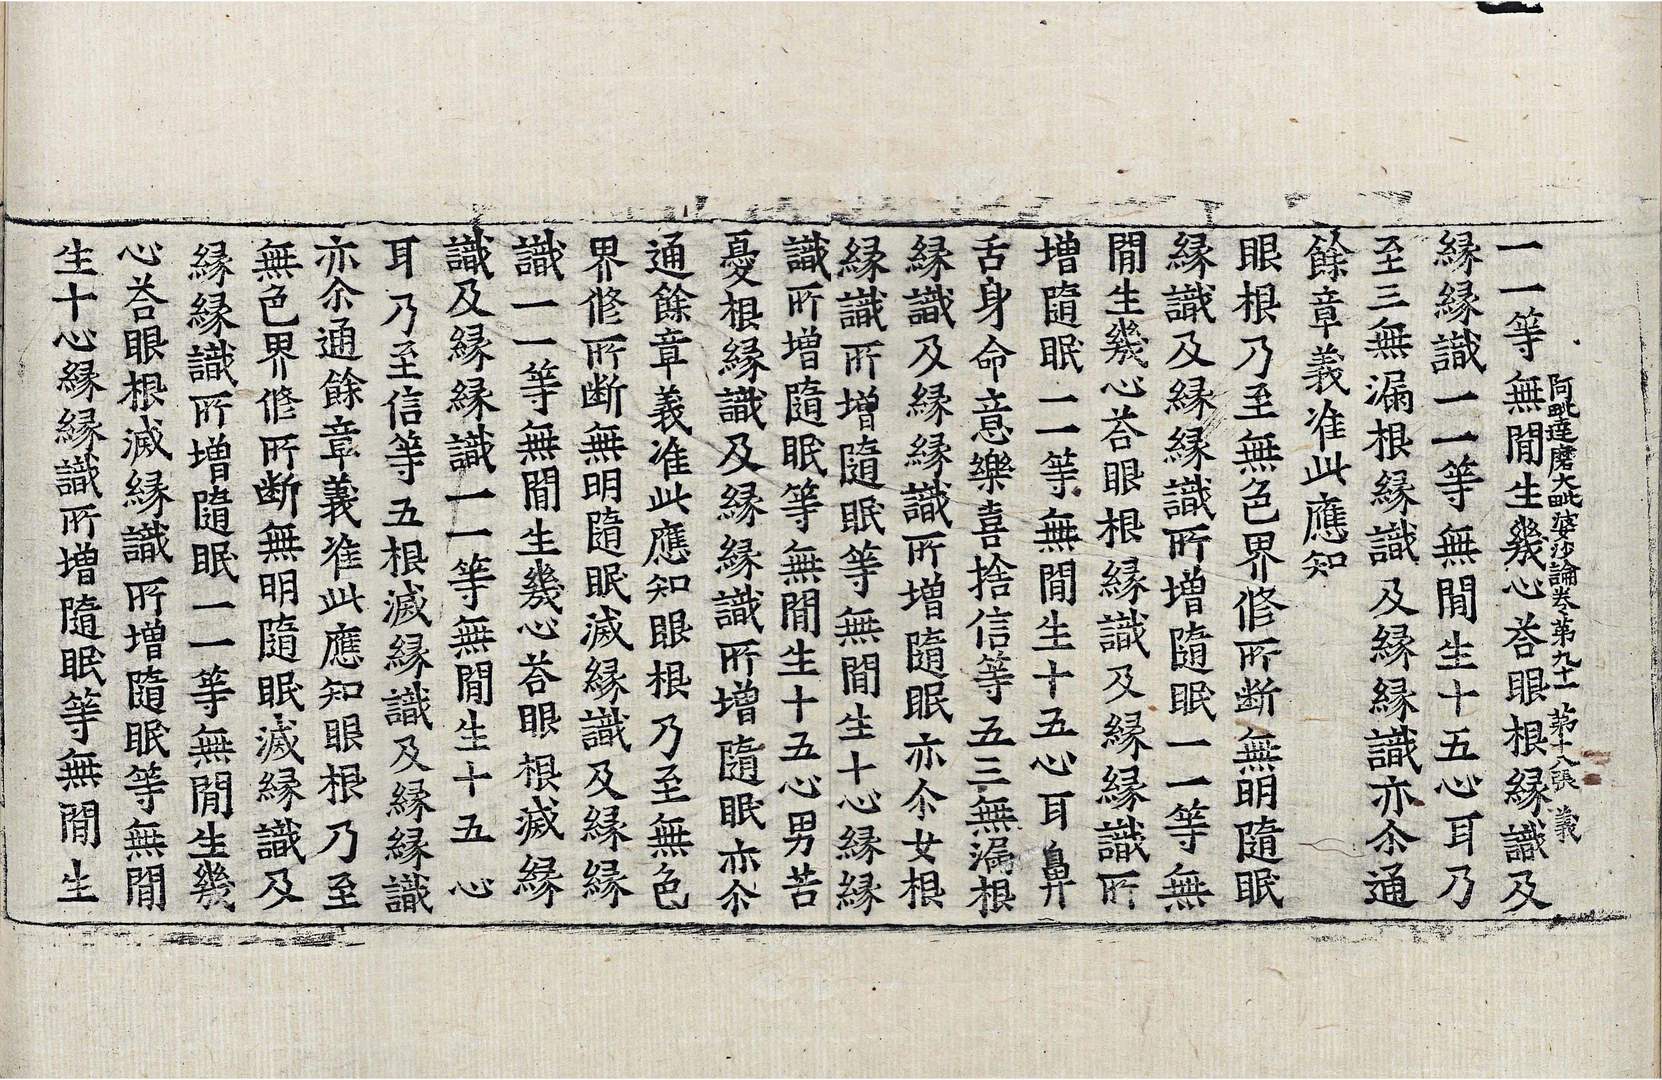 阿毗達磨大毗婆沙論卷第九十一 第十八張 義
一一等無閒生幾心荅眼根緣識及
緣緣識一一等無閒生十五心耳乃
至三無漏根緣識及緣緣識亦尒通
餘章義准此應知
眼根乃至無色界修所断無明隨眠
緣識及緣緣識所增隨眠一一等無
閒生幾心荅眼根緣識及緣緣識所
增隨眠一一等無閒生十五心耳鼻
舌身命意樂喜捨信等五三無漏根
緣識及緣緣識所增隨眠亦尒女根
緣識所增隨眠等無閒生十心緣緣
識所增隨眠等無閒生十五心男苦
憂根緣識及緣緣識所增隨眠亦尒
通餘章義准此應知眼根乃至無色
界修所断無明隨眠滅緣識及緣緣
識一一等無閒生幾心荅眼根滅緣
識及緣緣識一一等無閒生十五心
耳乃至信等五根滅緣識及緣緣識
亦尒通餘章義准此應知眼根乃至
無色界修所断無明隨眠滅緣識及
緣緣識所增隨眠一一等無閒生幾
心荅眼根滅緣識所增隨眠等無閒
生十心緣緣識所增隨眠等無閒生